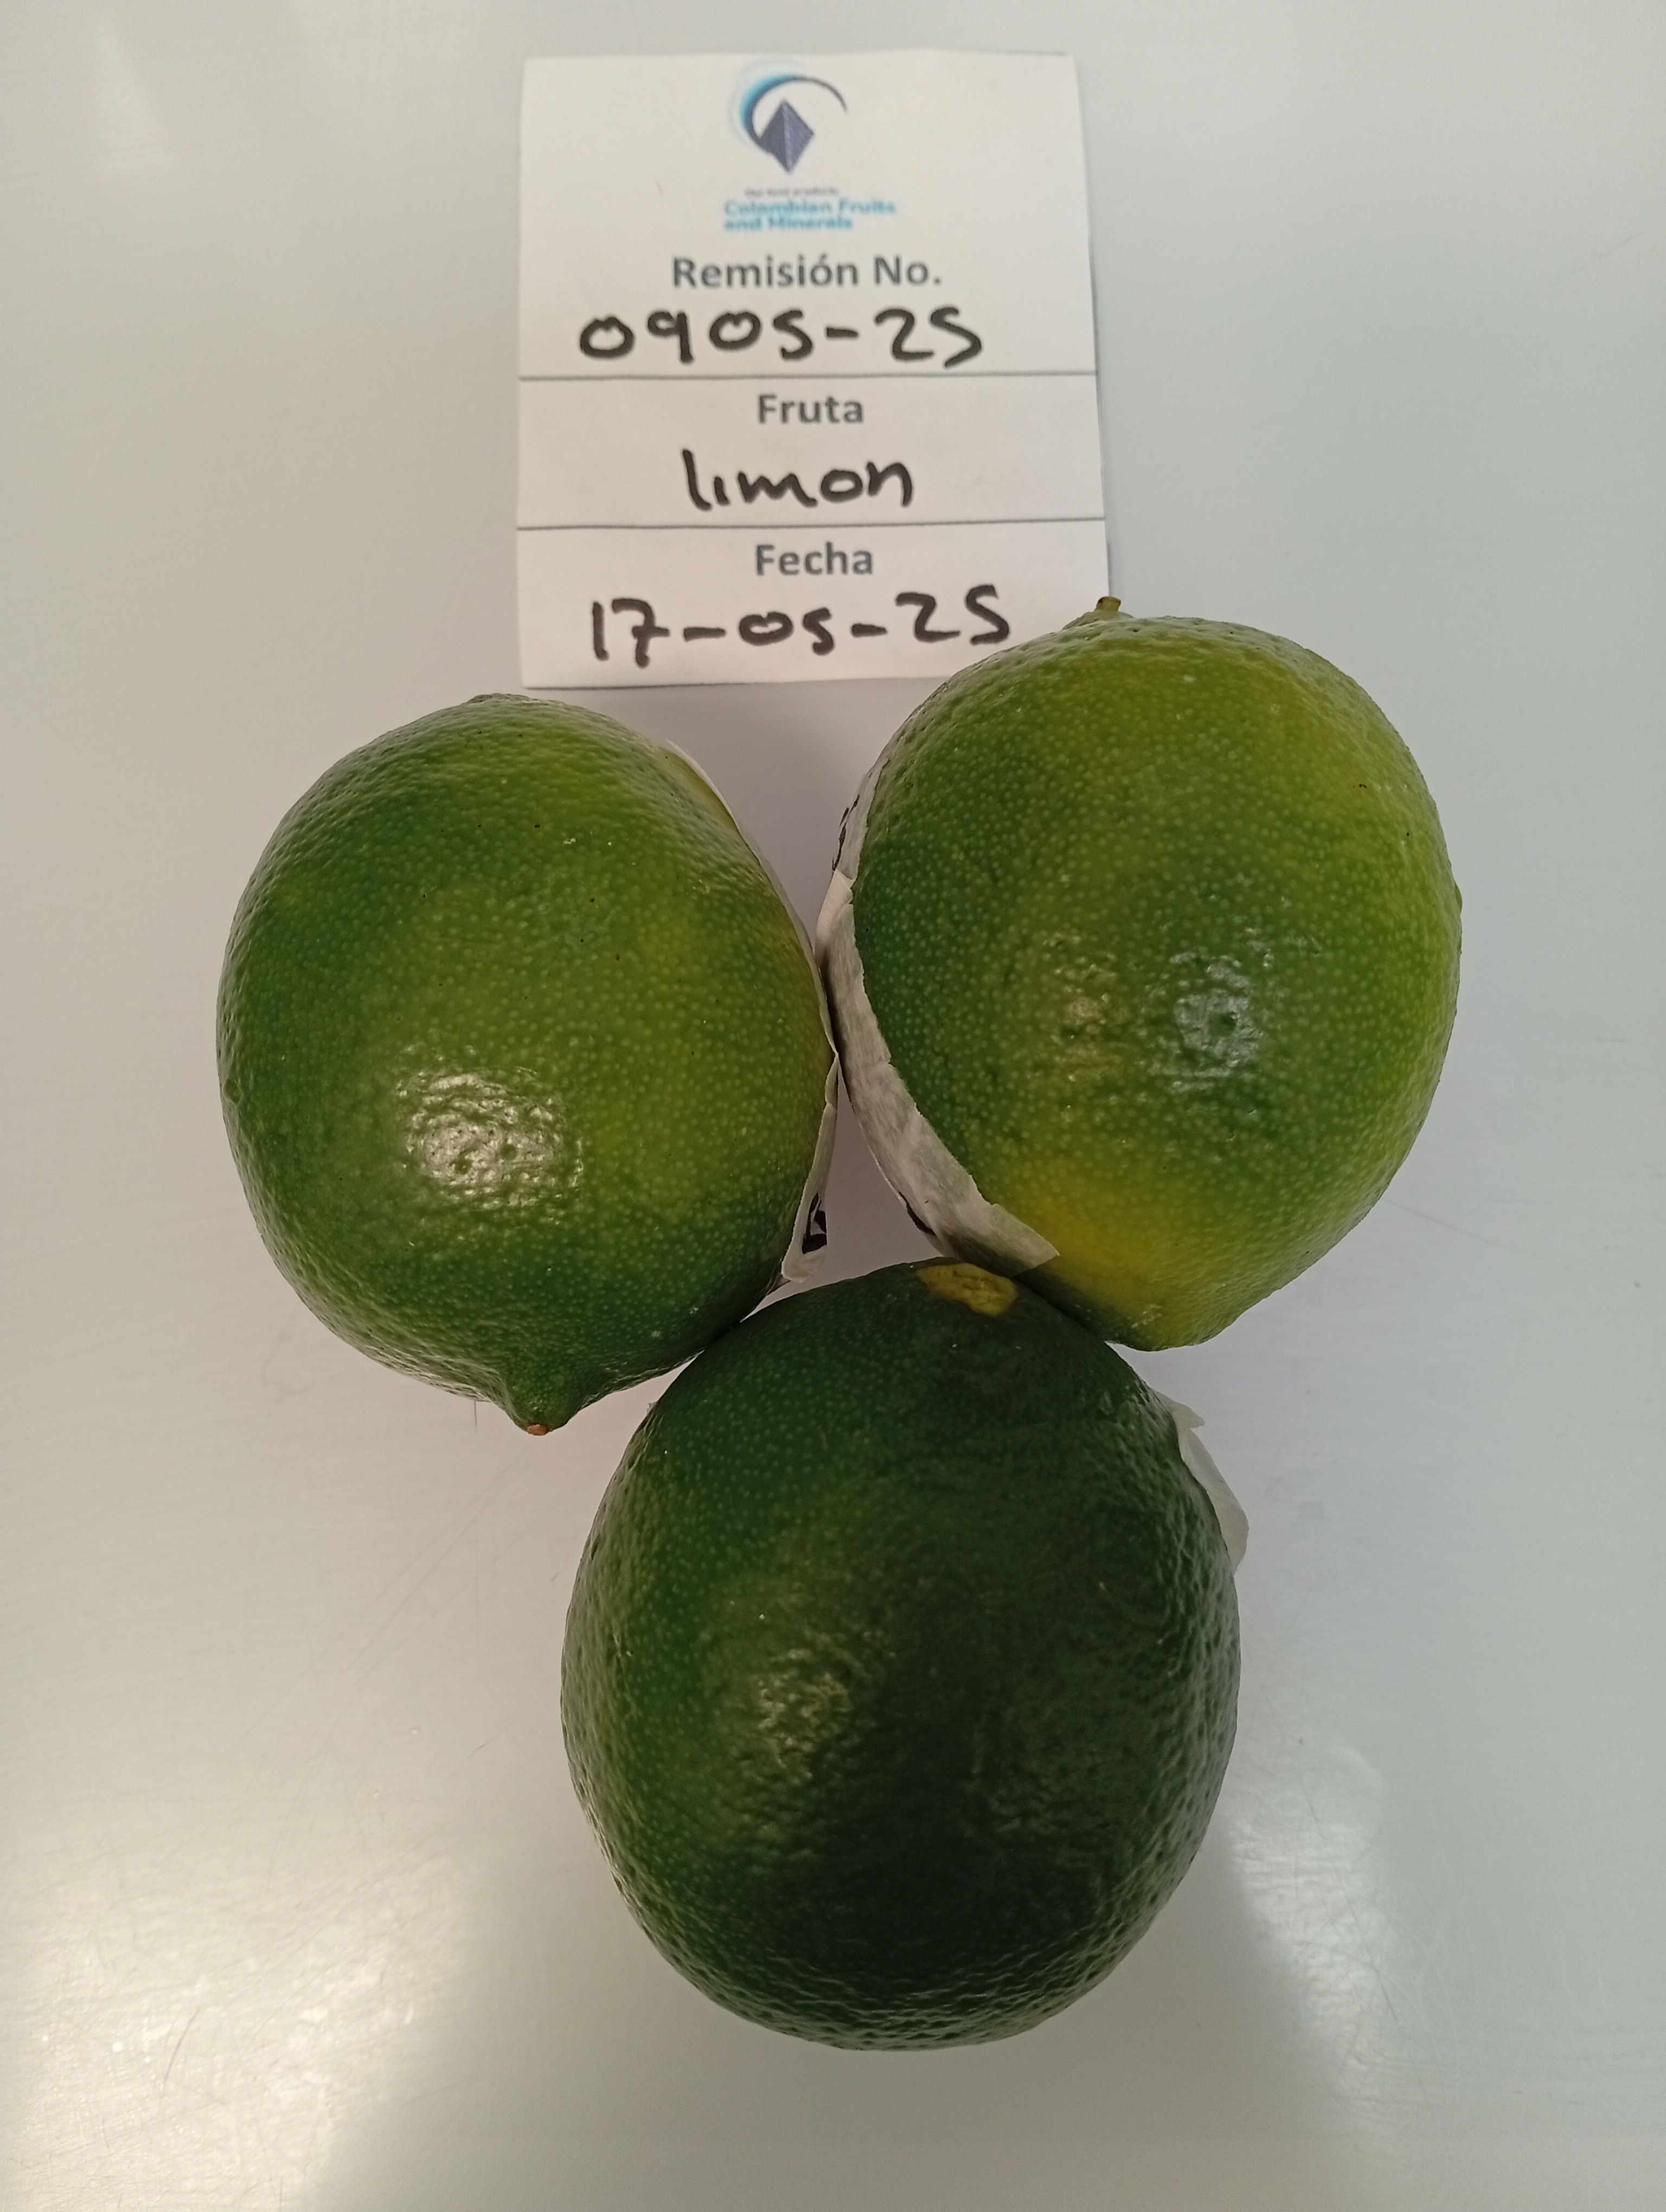 Colombian Fruits
and Minerals
Remisión No.
0905-25
Fruta
limon
Fecha
17-05-25